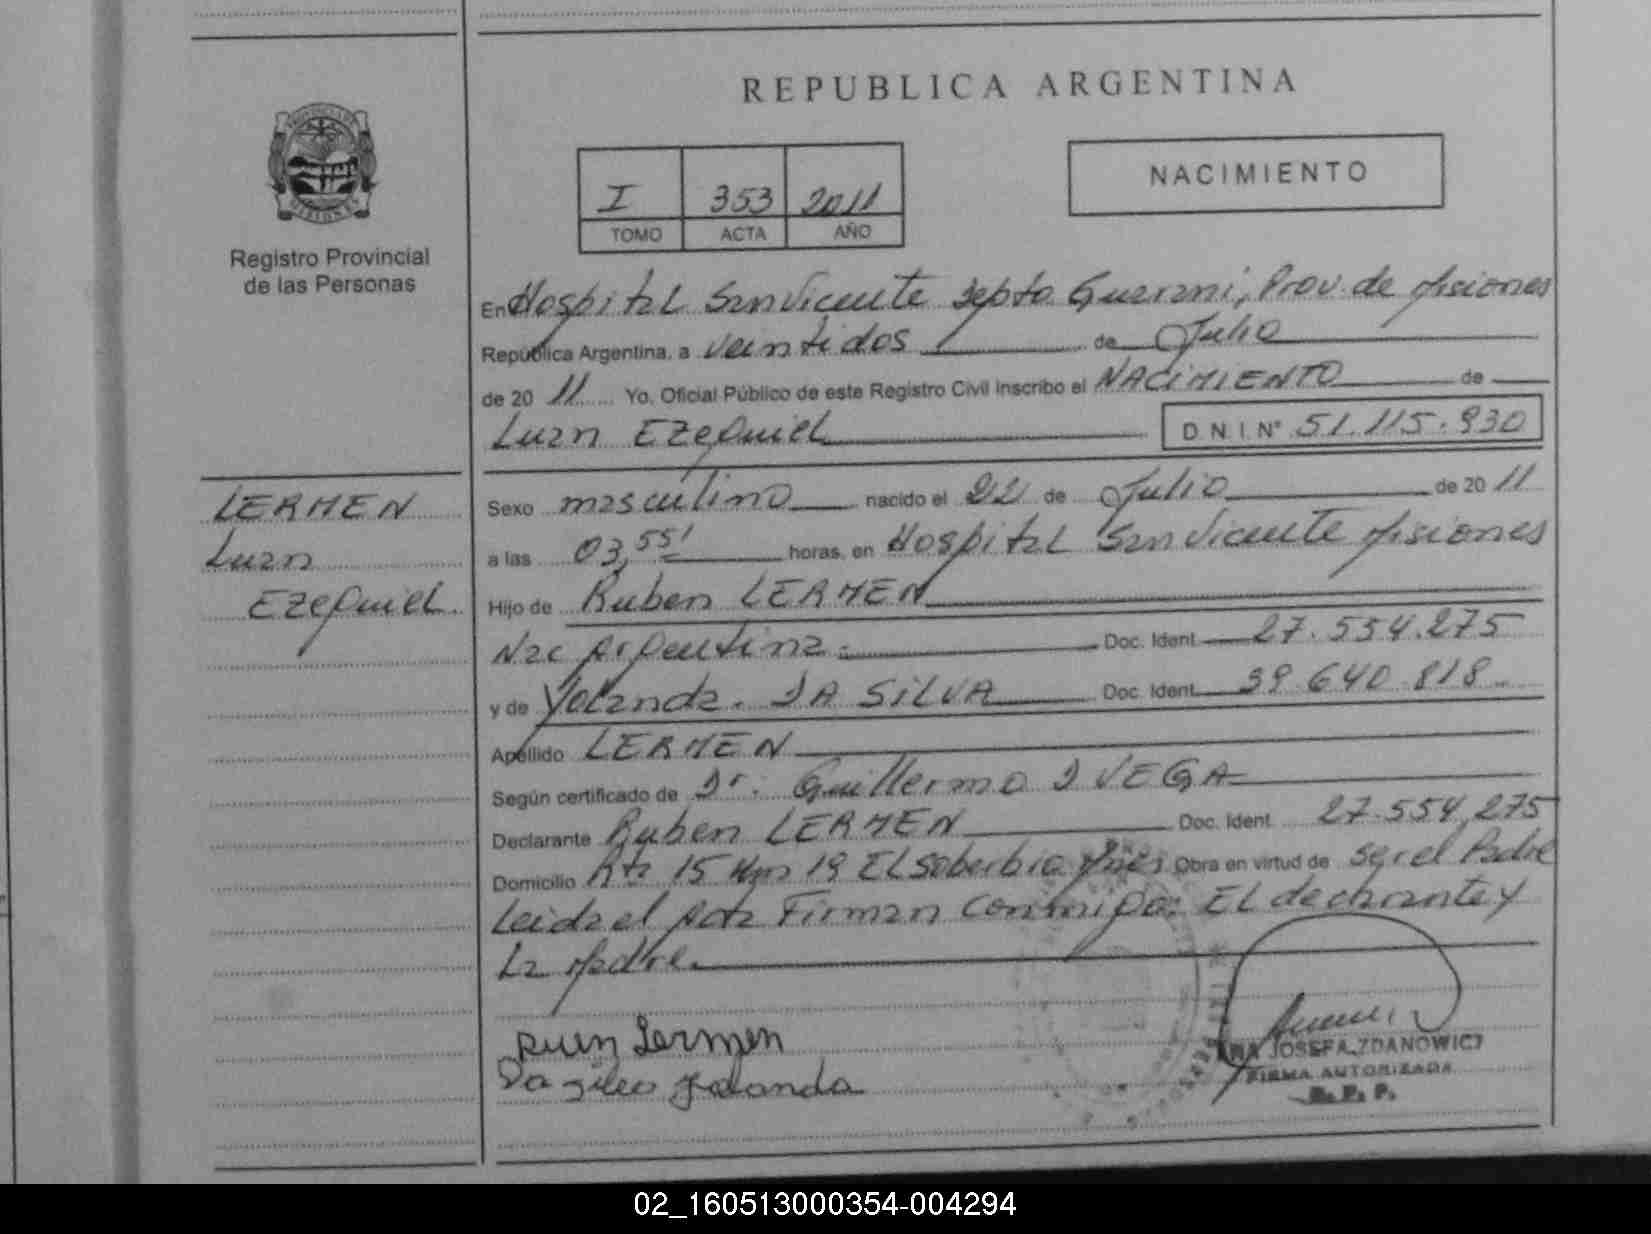 REPUBLICA ARGENTINA
PROVINCIA DE
MISIONES
Registro Provincial
de las Personas
I 353 2011
TOMO ACTA AÑO
NACIMIENTO
En Hospital San Vicente Depto Guarani, Prov. de Misiones
República Argentina, a veintidos de Julio
de 20 11 Yo, Oficial Público de este Registro Civil Inscribo el NACIMIENTO de
Luan Ezequiel D.N.I. N° 51.115.930
LERMEN
Luan
Ezequiel.
Sexo masculino nacido el 22 de Julio de 20 11
a las 03,55' horas, en Hospital San Vicente Misiones
Hijo de Ruben LERMEN
Nac Argentina.- Doc. Ident. 27.554.275
y de Yolanda. DA SILVA Doc. Ident. 39.640.818
Apellido LERMEN
Según certificado de Dr. Guillermo D VEGA
Declarante Ruben LERMEN Doc. Ident. 27.554,275
Domicilio Rta 15 Km 19 El soberbio Mnes Obra en virtud de ser el Padre
Leida el Acta Firman conmigo: El declarante y
La Madre.
Ruen Lermen
Da silva Yolanda
JOSEFA ZDANOWICZ
FIRMA AUTORIZADA
R. P. P.
02_160513000354-004294